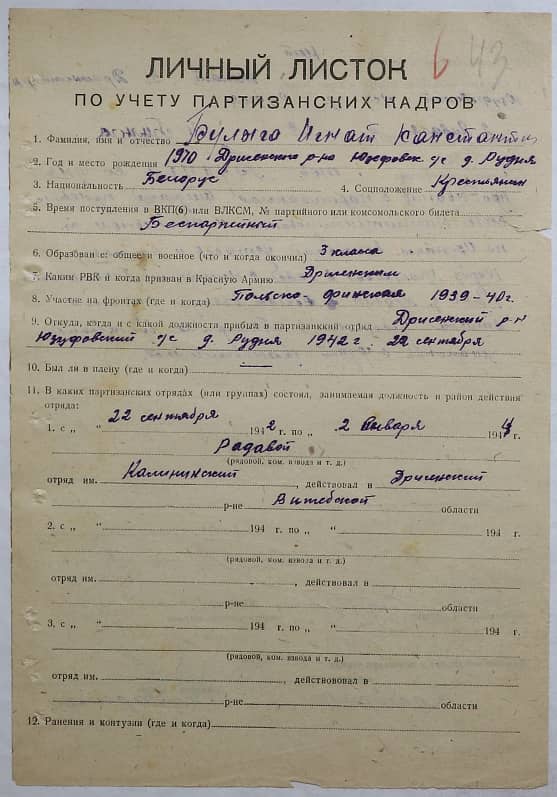 6 43
ЛИЧНЫЙ ЛИСТОК
ПО УЧЕТУ ПАРТИЗАНСКИХ КАДРОВ
1. Фамилия, имя и отчество Булыго Игнат Канстантин
2. Год и место рождения 1910 Дрисенского р-на Юзефовск с/с д. Рудня
3. Национальность Беларус 4. Соцположение Крестьянин
5. Время поступления в ВКП(б) или ВЛКСМ, № партийного или комсомольского билета
Беспартийный
6. Образование: общее и военное (что и когда окончил) 3 класа
7. Каким РВК и когда призван в Красную Армию Дрисенским
8. Участие на фронтах (где и когда) Польско-финская 1939-40 г.
9. Откуда, когда и с какой должности прибыл в партизанский отряд Дрисенский р-н
Юзуфовский с/с д. Рудня 1942 г. 22 сентября
10. Был ли в плену (где и когда) —
11. В каких партизанских отрядах (или группах) состоял, занимаемая должность и район действия
отряда:
1. с „ 22 сентября 1942 г. по „ 2 Января 1944 г.
Радавой
(рядовой, ком. взвода и т. д.)
отряд им. Калининский, действовал в Дрисенский
р-не Витебской области
2. с „ “ 194 г. по „ “ 194 г.
(рядовой, ком. взвода и т. д.)
отряд им., действовал в
р-не области
3. с „ “ 194 г. по „ “ 194 г.
(рядовой, ком. взвода и т. д.)
отряд им., действововал в
р-не области
12. Ранения и контузии (где и когда)